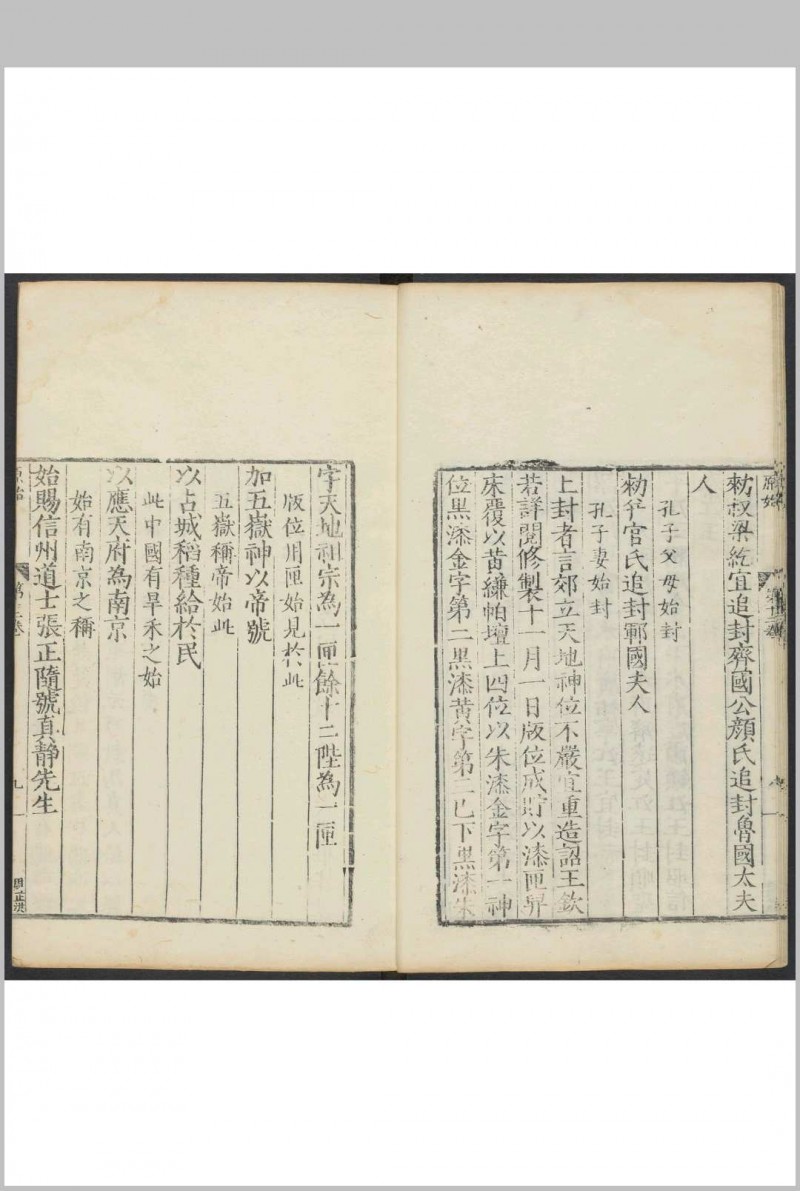 勑叔梁紇宜追封齊國公顔氏追封魯國太夫
人
孔子父母始封
勑亓官氏追封鄆國夫人
孔子妻始封
上封者言郊立天地神位不嚴宜重造詔王欽
若詳閱修製十一月一日版位成貯以漆匣舁
床覆以黃縑帕壇上四位以朱漆金字第一神
位黑漆金字第二黒漆黄字第三已下黒漆朱
字天地祖宗為一匣餘十二陛為一匣
版位用匣始見於此
加五嶽神以帝號
五嶽稱帝始此
以占城稻種給於民
此中國有旱禾之始
以應天府為南京
始有南京之稱
始賜信州道士張正隨號真静先生
九